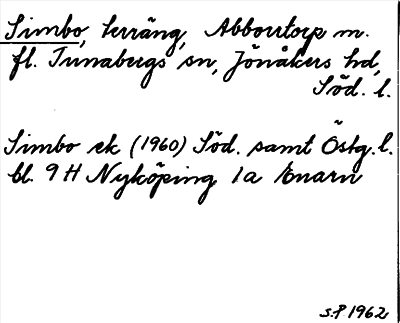 Simbo, terräng, Abborrtorp m.
fl. Tunabergs sn, Jönåkers hd,
Söd. l.
Simbo ek (1960) Söd. samt Östg. l.
bl. 9 H Nyköping 1a
S.P 1962